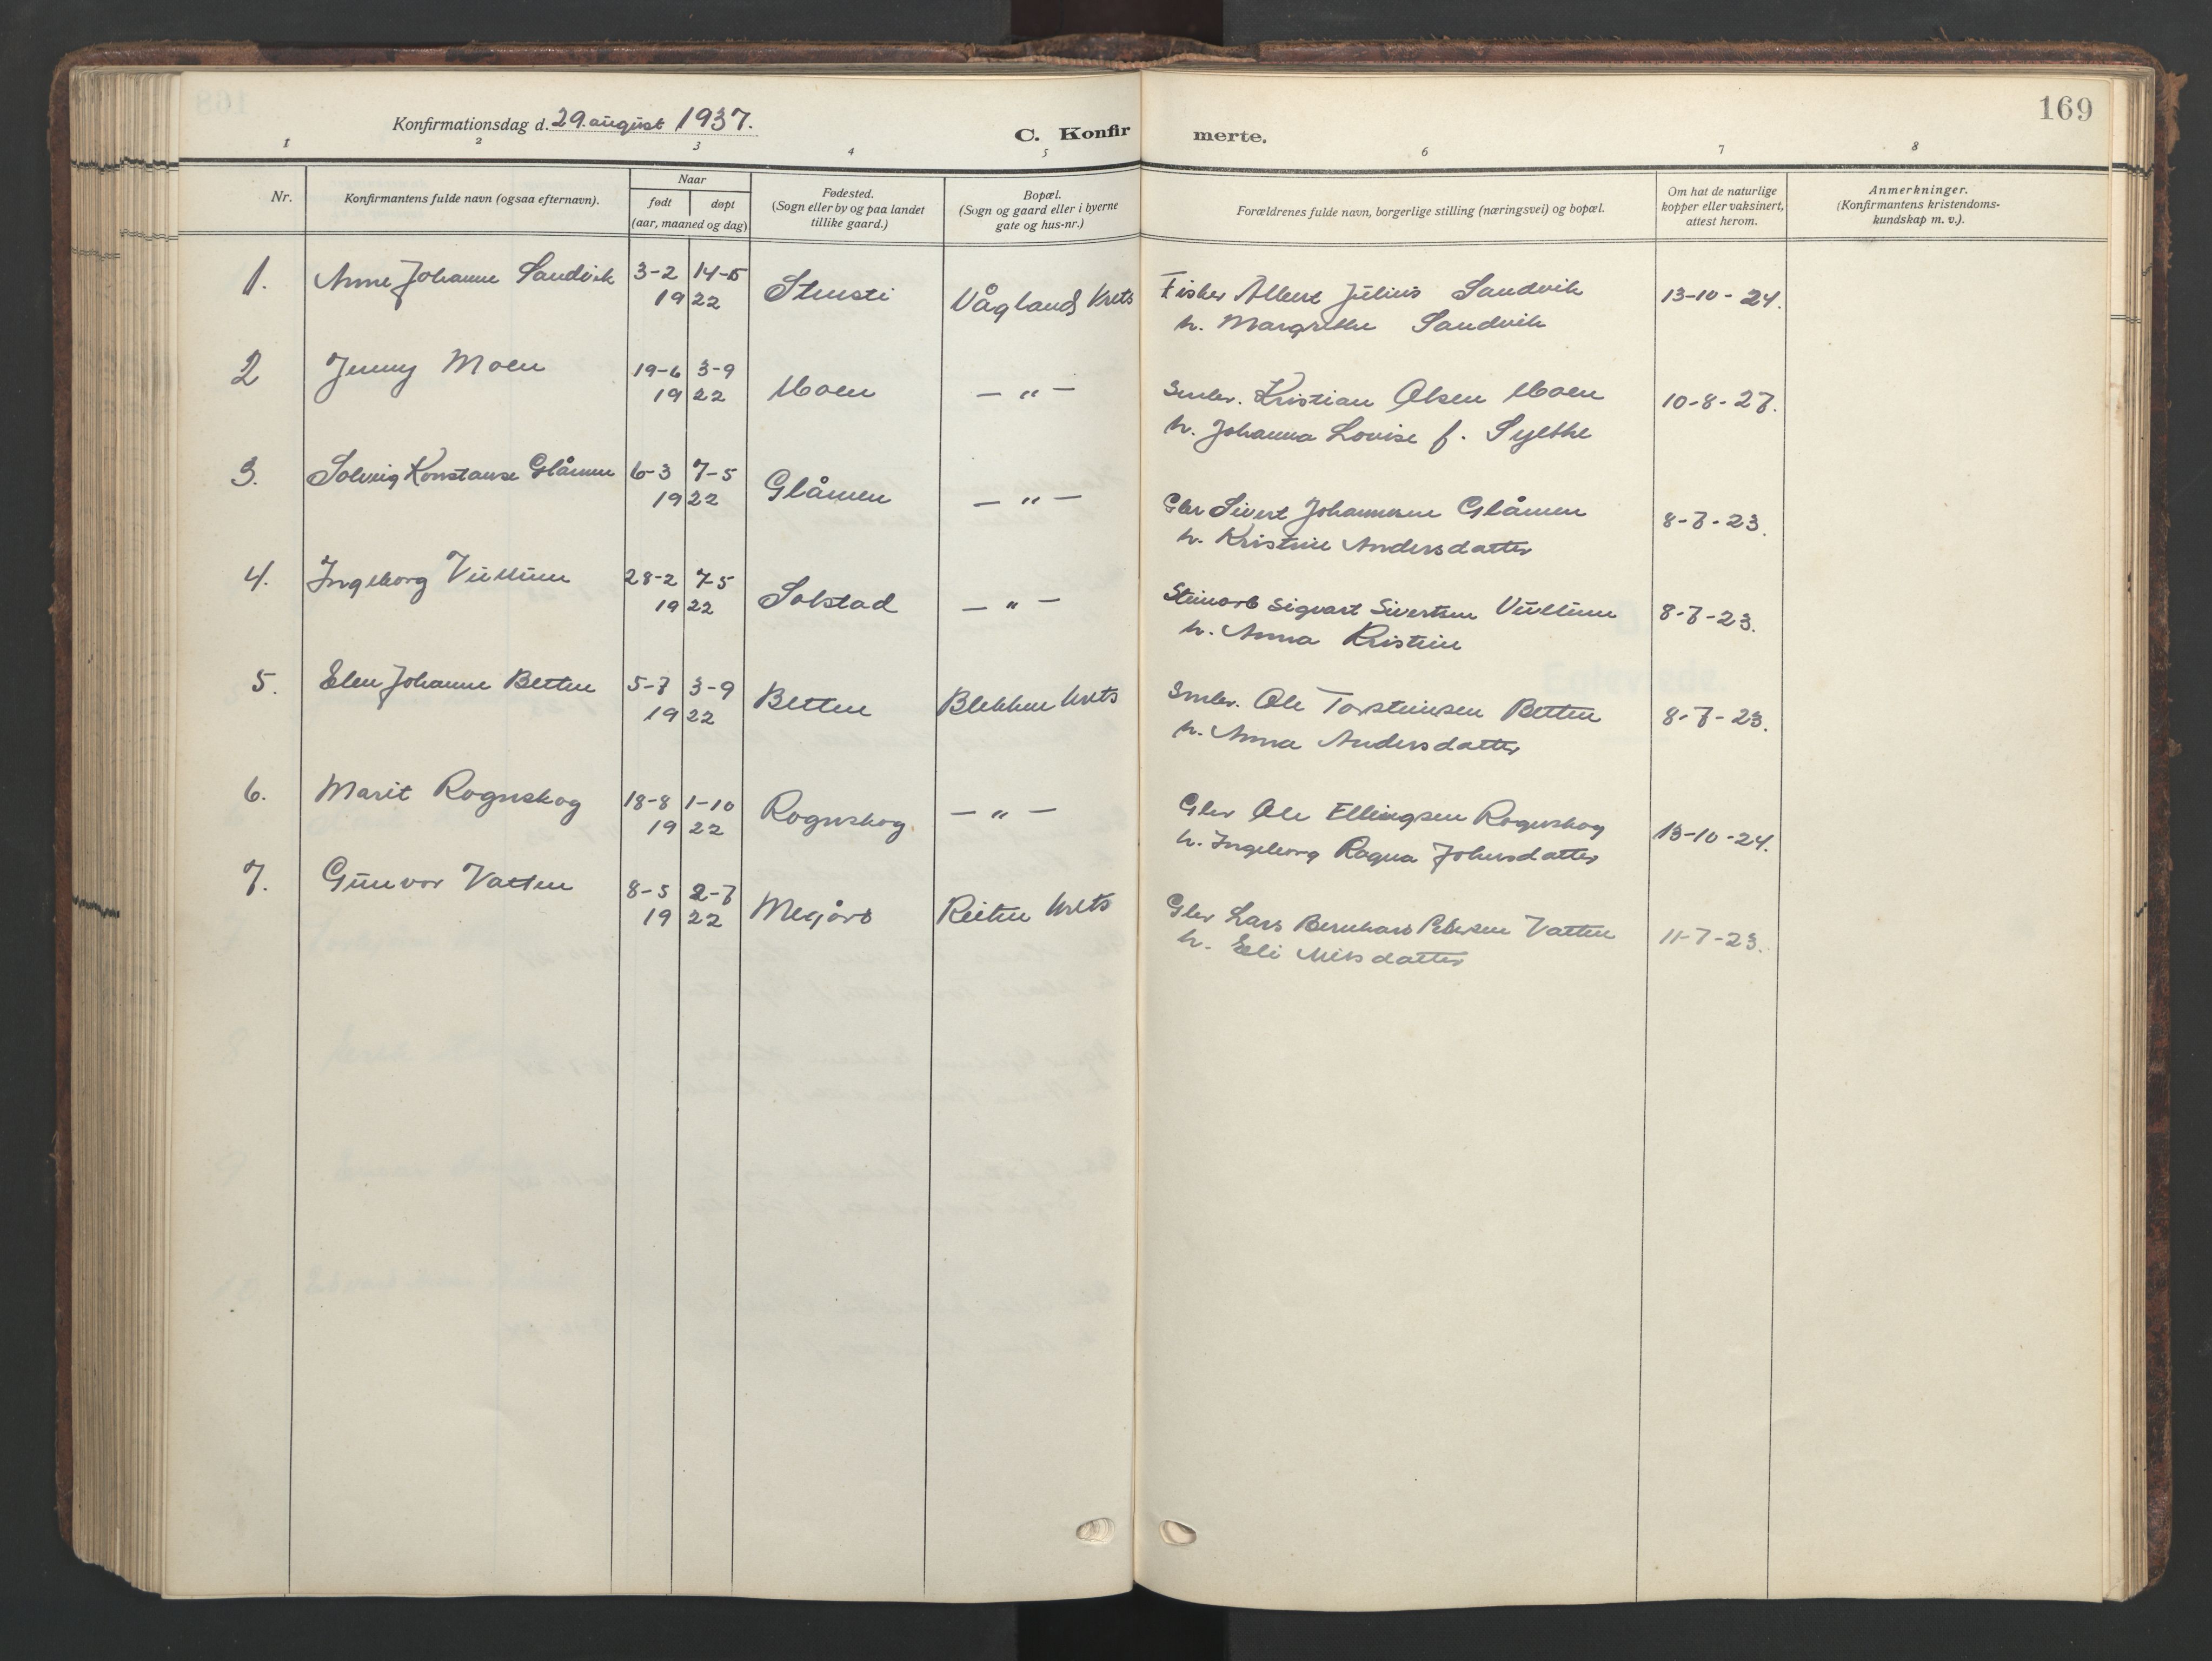 169
Konfirmationsdag d. 29. august 1937.
C. Konfirmerte.
1 2 3 4 5 6 7 8
Nr.
Konfirmantens fulde navn (ogsaa efternavn).
Naar
født døpt
(aar, maaned og dag)
Fødested.
(Sogn eller by og paa landet
tillike gaard.)
Bopæl.
(Sogn og gaard eller i byerne
gate og hus-nr.)
Forældrenes fulde navn, borgerlige stilling (næringsvei) og bopæl.
Om hat de naturlige
kopper eller vaksinert,
attest herom.
Anmerkninger.
(Konfirmantens kristendoms-
kundskap m. v.).
1. Anne Johanne Sandvik 3-2 14-5 Fisker Albert Julius Sandvik 13-10-24.
1922 Stensti Våglands Krets
h. Margrethe Sandvik
2 Jenny Moen 19-6 3-9 Smbr. Kristian Olsen Moen 10-8-27.
1922 Moen — „ —
h. Johanna Lovise f. Sylthe
3. Solveig Konstanse Glåmen 6-3 7-5 Gbr Sivert Johannesen Glåmen 8-7-23.
1922 Glåmen — „ —
h. Kristine Andersdatter
4. Ingeborg Vullum 28-2 7-5 Steinarb Sigvart Sivertsen Vullum 8-7-23.
1922 Solstad — „ —
h. Anna Kristine
5. Elen Johanne Betten 5-7 3-9 Smbr. Ole Torsteinsen Betten 8-7-23.
1922 Betten Blekken krets
h. Anna Andersdatter
6. Marit Rognskog 18-8 1-10 Gbr Ole Ellingsen Rognskog 13-10-24.
1922 Rognskog — „ —
h. Ingeborg Ragna Johnsdatter
7. Gunvor Vatten 8-5 2-7 Gbr Lars Bernhard Pedersen Vatten 11-7-23.
1922 Megård Reiten krets
h. Eli Nilsdatter